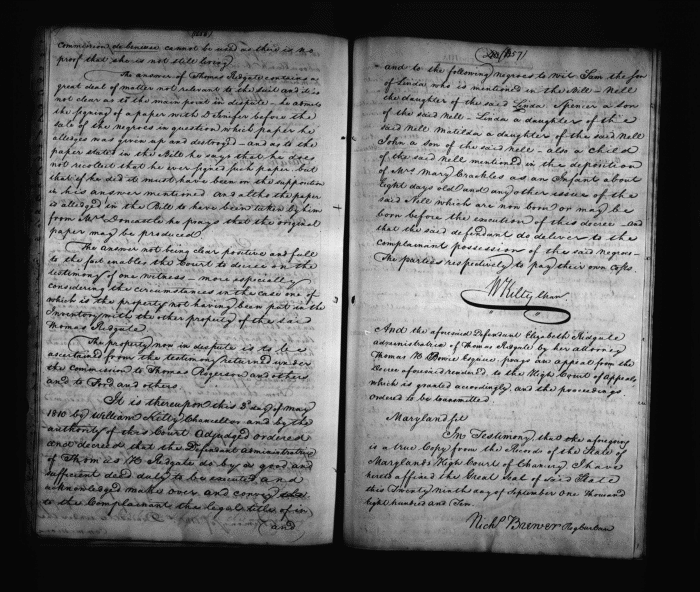 commission de benesse cannot be used as there is no
proof that she is not still living
The answer of Thomas Ridgate contains a
great deal of matter not relevant to the suit and it is
not clear as to the main point in dispute - he admits
the signing of a paper with D Jenifer before the
sale of the negroes in question which paper he
alleges was given up and destroyed - and as to the
paper stated in the Bill he says that he does
not recollect that he ever signed such paper but
that if he did it must have been on the supposition
in his answer mentioned And altho the paper
is alledged in the Bill to have been taken by him
from Mrs Doncastle he prays that the original
paper may be produced
The answer not being clear positive and full
to the fact enables the Court to decree on the
testimony of one witness - more especially
considering the circumstances in the case one of
which is the property not having been put in the
Inventory with the other property of the said
Thomas Ridgate
The property now in dispute is to be
ascertained from the testimony returned under
the commission to Thomas Rogerson and others
and to Ford and others
It is thereupon this 3d day of May
1810 by William Kilty Chancellor and by the
authority of this Court Adjudged ordered
and decreed that the Defendant Administratrix
of Thomas H Ridgate do by a good and
sufficient deed duly to be executed and
acknowledged make over and convey
to the Complainant the legal title of in
and
257
and to the following Negroes to wit Sam the son
of Linda who is mentioned in the Bill - Nell
the daughter of the said Linda Spencer a son
of the said Nell - Linda a daughter of the
said Nell Matilda a daughter of the said Nell
John a son of the said Nell - also a child
of the said Nell mentioned in the deposition
of Mrs Mary Crackles as an Infant about
Eight days old and any other issue of the
said Nell which are now born or may be
born before the execution of this decree and
that the said defendant do deliver to the
complainant possession of the said negroes -
The parties respectively to pay their own costs
W Kilty Chan
And the aforesaid Defendant Elizabeth Ridgate
administratrix of Thomas Ridgate by her attorney
Thomas H Bowie Esquire prays an appeal from the
Decree aforesaid rendered to the High Court of Appeals
which is granted accordingly and the proceedings
ordered to be transmitted
Maryland sct
In Testimony that the aforegoing
is a true Copy from the Records of the State of
Maryland's High Court of Chancery I have
hereto affixed the Great Seal of said State
this Twenty Ninth day of September One Thousand
Eight hundred and Ten
Nichs Brewer Reg Cur Can